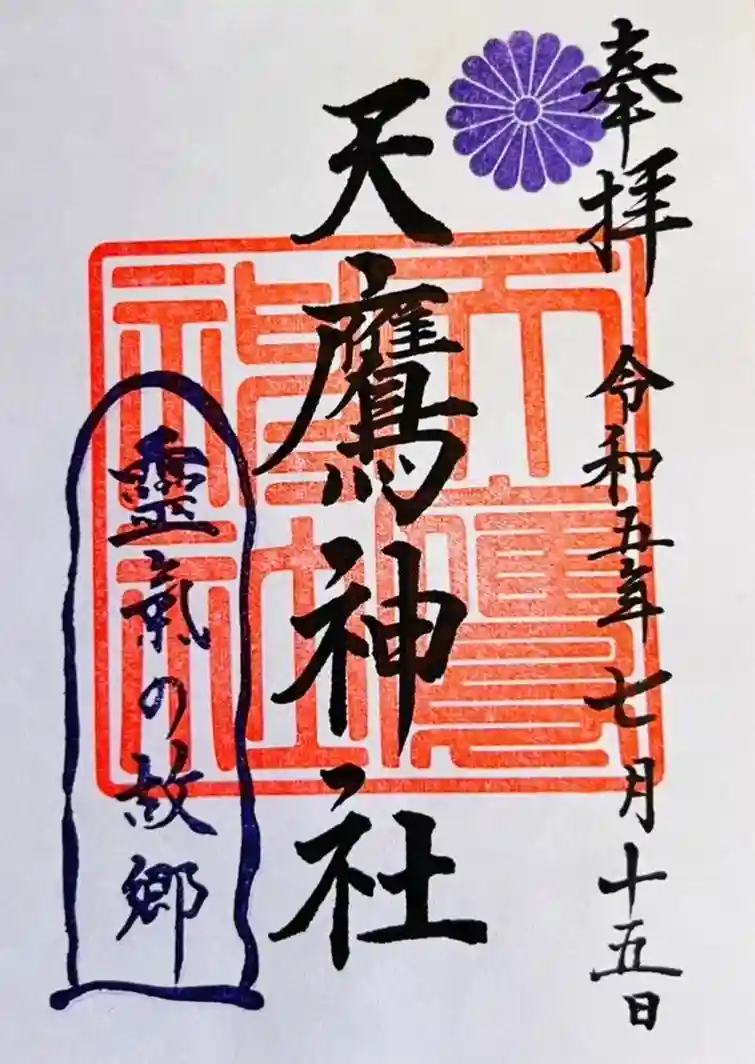 奉拝
令和五年七月十五日
天鷹神社
天鷹神社
靈氣の故郷